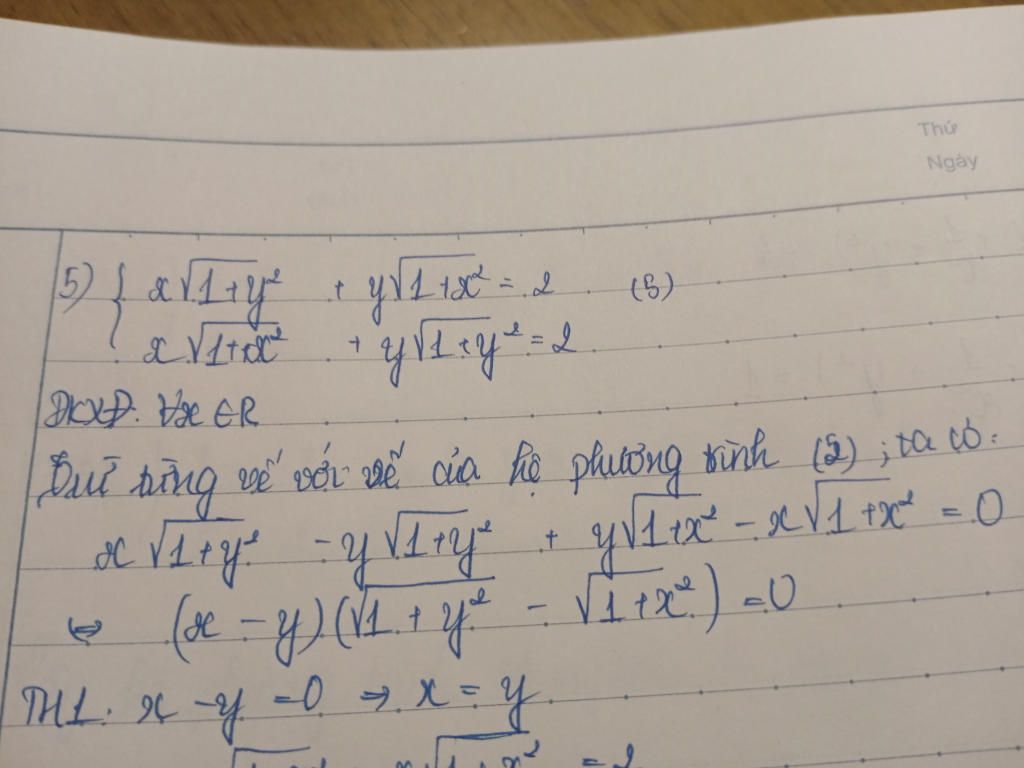 Thứ
Ngày
5) { x√1+y² + y√1+x² = 2 (5)
x√1+x² + y√1+y² = 2
ĐKXĐ: ∀x ∈ R
Trừ từng vế với vế của hệ phương trình (5) ; ta có:
x√1+y² - y√1+y² + y√1+x² - x√1+x² = 0
⇔ (x - y)(√1+y² - √1+x²) = 0
TH1. x - y = 0 ⇒ x = y
√1+x² = 2